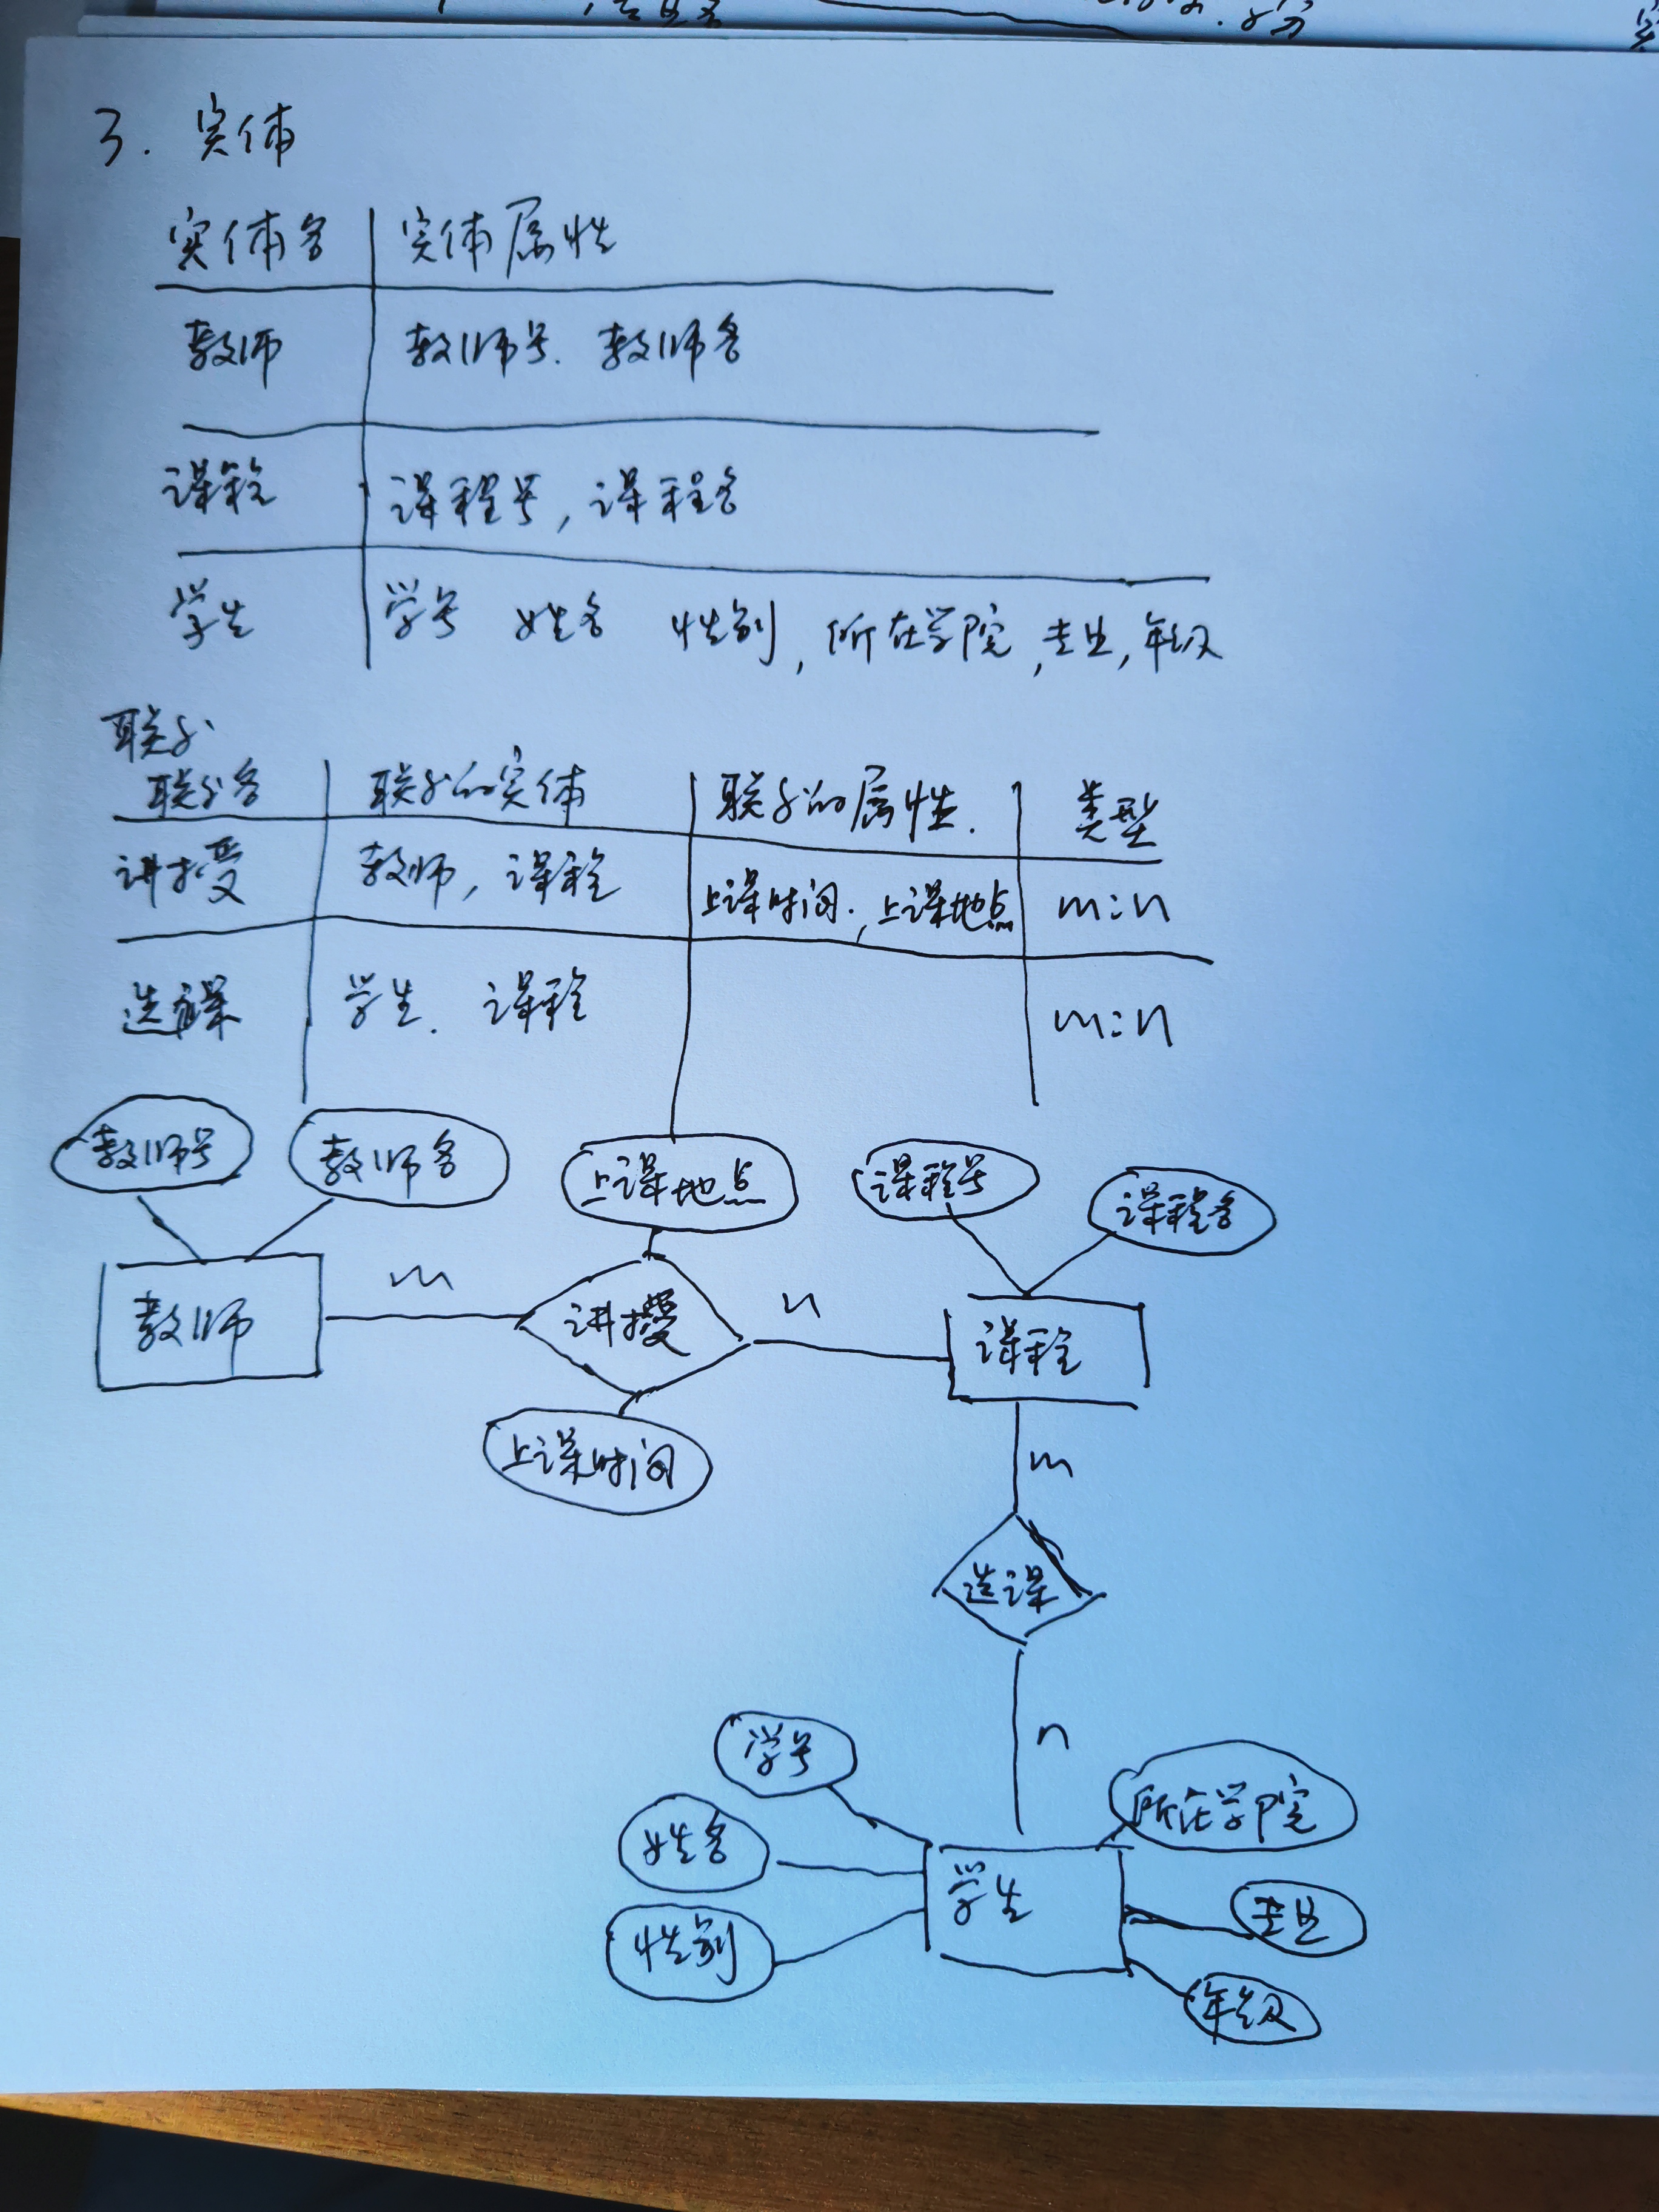 3. 实体
实体名 实体属性
教师 教师号. 教师名
课程 课程号, 课程名
学生 学号 姓名 性别, 所在学院, 专业, 年级
联系
联系名 联系的实体 联系的属性. 类型
讲授 教师, 课程 上课时间. , 上课地点 m:n
选课 学生. 课程 m:n
教师号 教师名 上课地点 课程号 课程名
m n
教师 讲授 课程
上课时间
m
选课
n
学号
所在学院
姓名
学生
专业
性别
年级